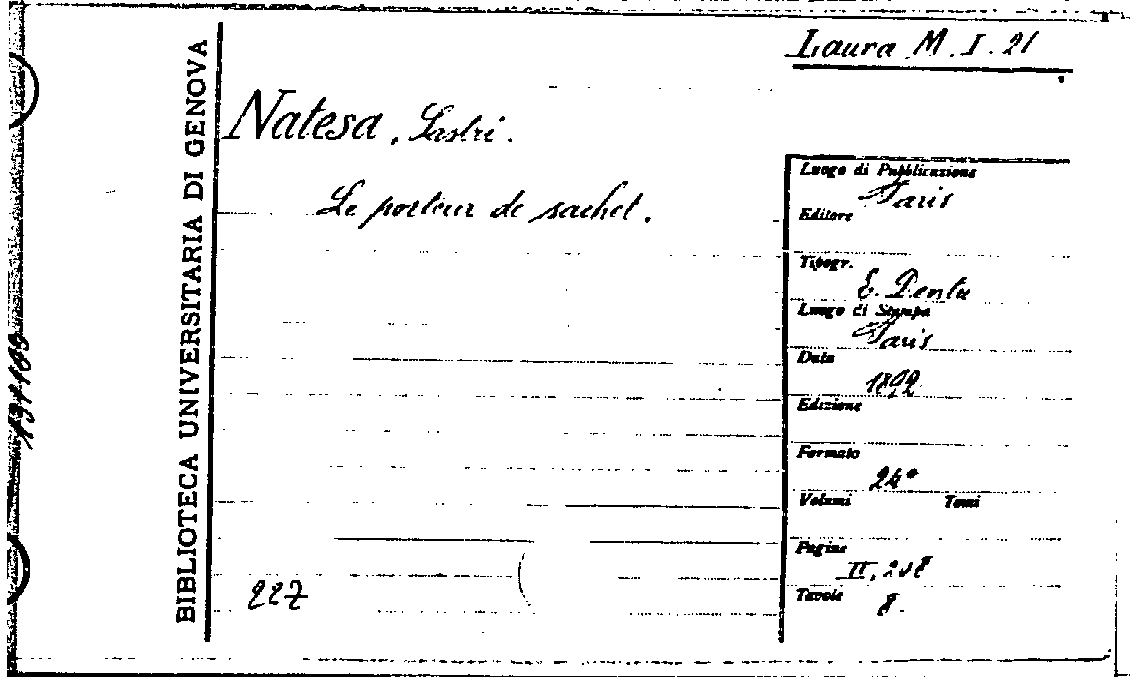 Laura M. I. 21
BIBLIOTECA UNIVERSITARIA DI GENOVA
Natesa, Sastri.
Le porteur de sachet.
Luogo di Pubblicazione
Paris
Editore
Tipogr.
E. Dentu
Luogo di Stampa
Paris
Data
1892
Edizione
Formato
24°
Volumi Tomi
Pagine
II, 208
Tavole
8.
227